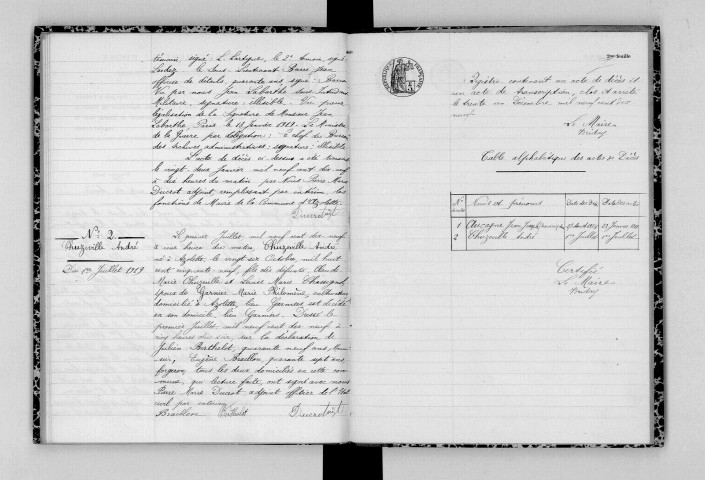 témoin, signé L. Lartigue, le 2e témoin signé
Lordez. Le Sous-Lieutenant Darré Jean
officier de détails, quarante ans signé: Darré
Vu par nous Jean Labarthe Sous Intendant
Militaire, signature: illisible. Vu pour
légalisation de la signature de Monsieur Jean
Labarthe, Paris le 13 Janvier 1919. Le Ministre
de la Guerre par délégation: Le chef du Bureau
des archives administratives: signature: illisible
L'acte de décès ci-dessus a été transcrit
le vingt-deux janvier mil neuf cent dix neuf
à dix heures du matin, par Nous Pierre Marie
Ducrot adjoint, remplissant par intérim, les
fonctions de Maire de la Commune d'Azolette.
Ducrot
No 2.
Thuzeville André
Du 1er Juillet 1919
Le premier Juillet mil neuf cent dix neuf
à une heure du matin, Thuzeville André
né à Azolette, le vingt six Octobre, mil huit
cent cinquante neuf, fils des défunts, Claude
Marie Thuzeville et Louise Marie Chavagnat
époux de Garnier Marie Philomène, cultivateur
domicilié à Azolette, lieu Garniers est décédé
en son domicile, lieu Garniers. Dressé le
premier Juillet, mil neuf cent dix neuf à
cinq heures du soir, sur la déclaration de
Julien Berthelot, quarante neuf ans,
Eugène Braillon, quarante sept ans
forgeron, tous les deux domiciliés en cette com
mune, qui lecture faite, ont signé avec nous
Pierre Marie Ducrot adjoint officier de l'État
civil par intérim
Braillon Berthelot Ducrot
feuille
Registre contenant un acte de décès et
un acte de transcription, clos et arrêté
le trente un Décembre mil neuf cent dix
neuf
Le Maire
Table alphabétique des actes de Décès
Nos Noms et prénoms Date des Date des actes
1 Aucagne Jean 22 Janvier 1919
2 Thuzeville André 1er Juillet 1er Juillet
Certifié
Le Maire